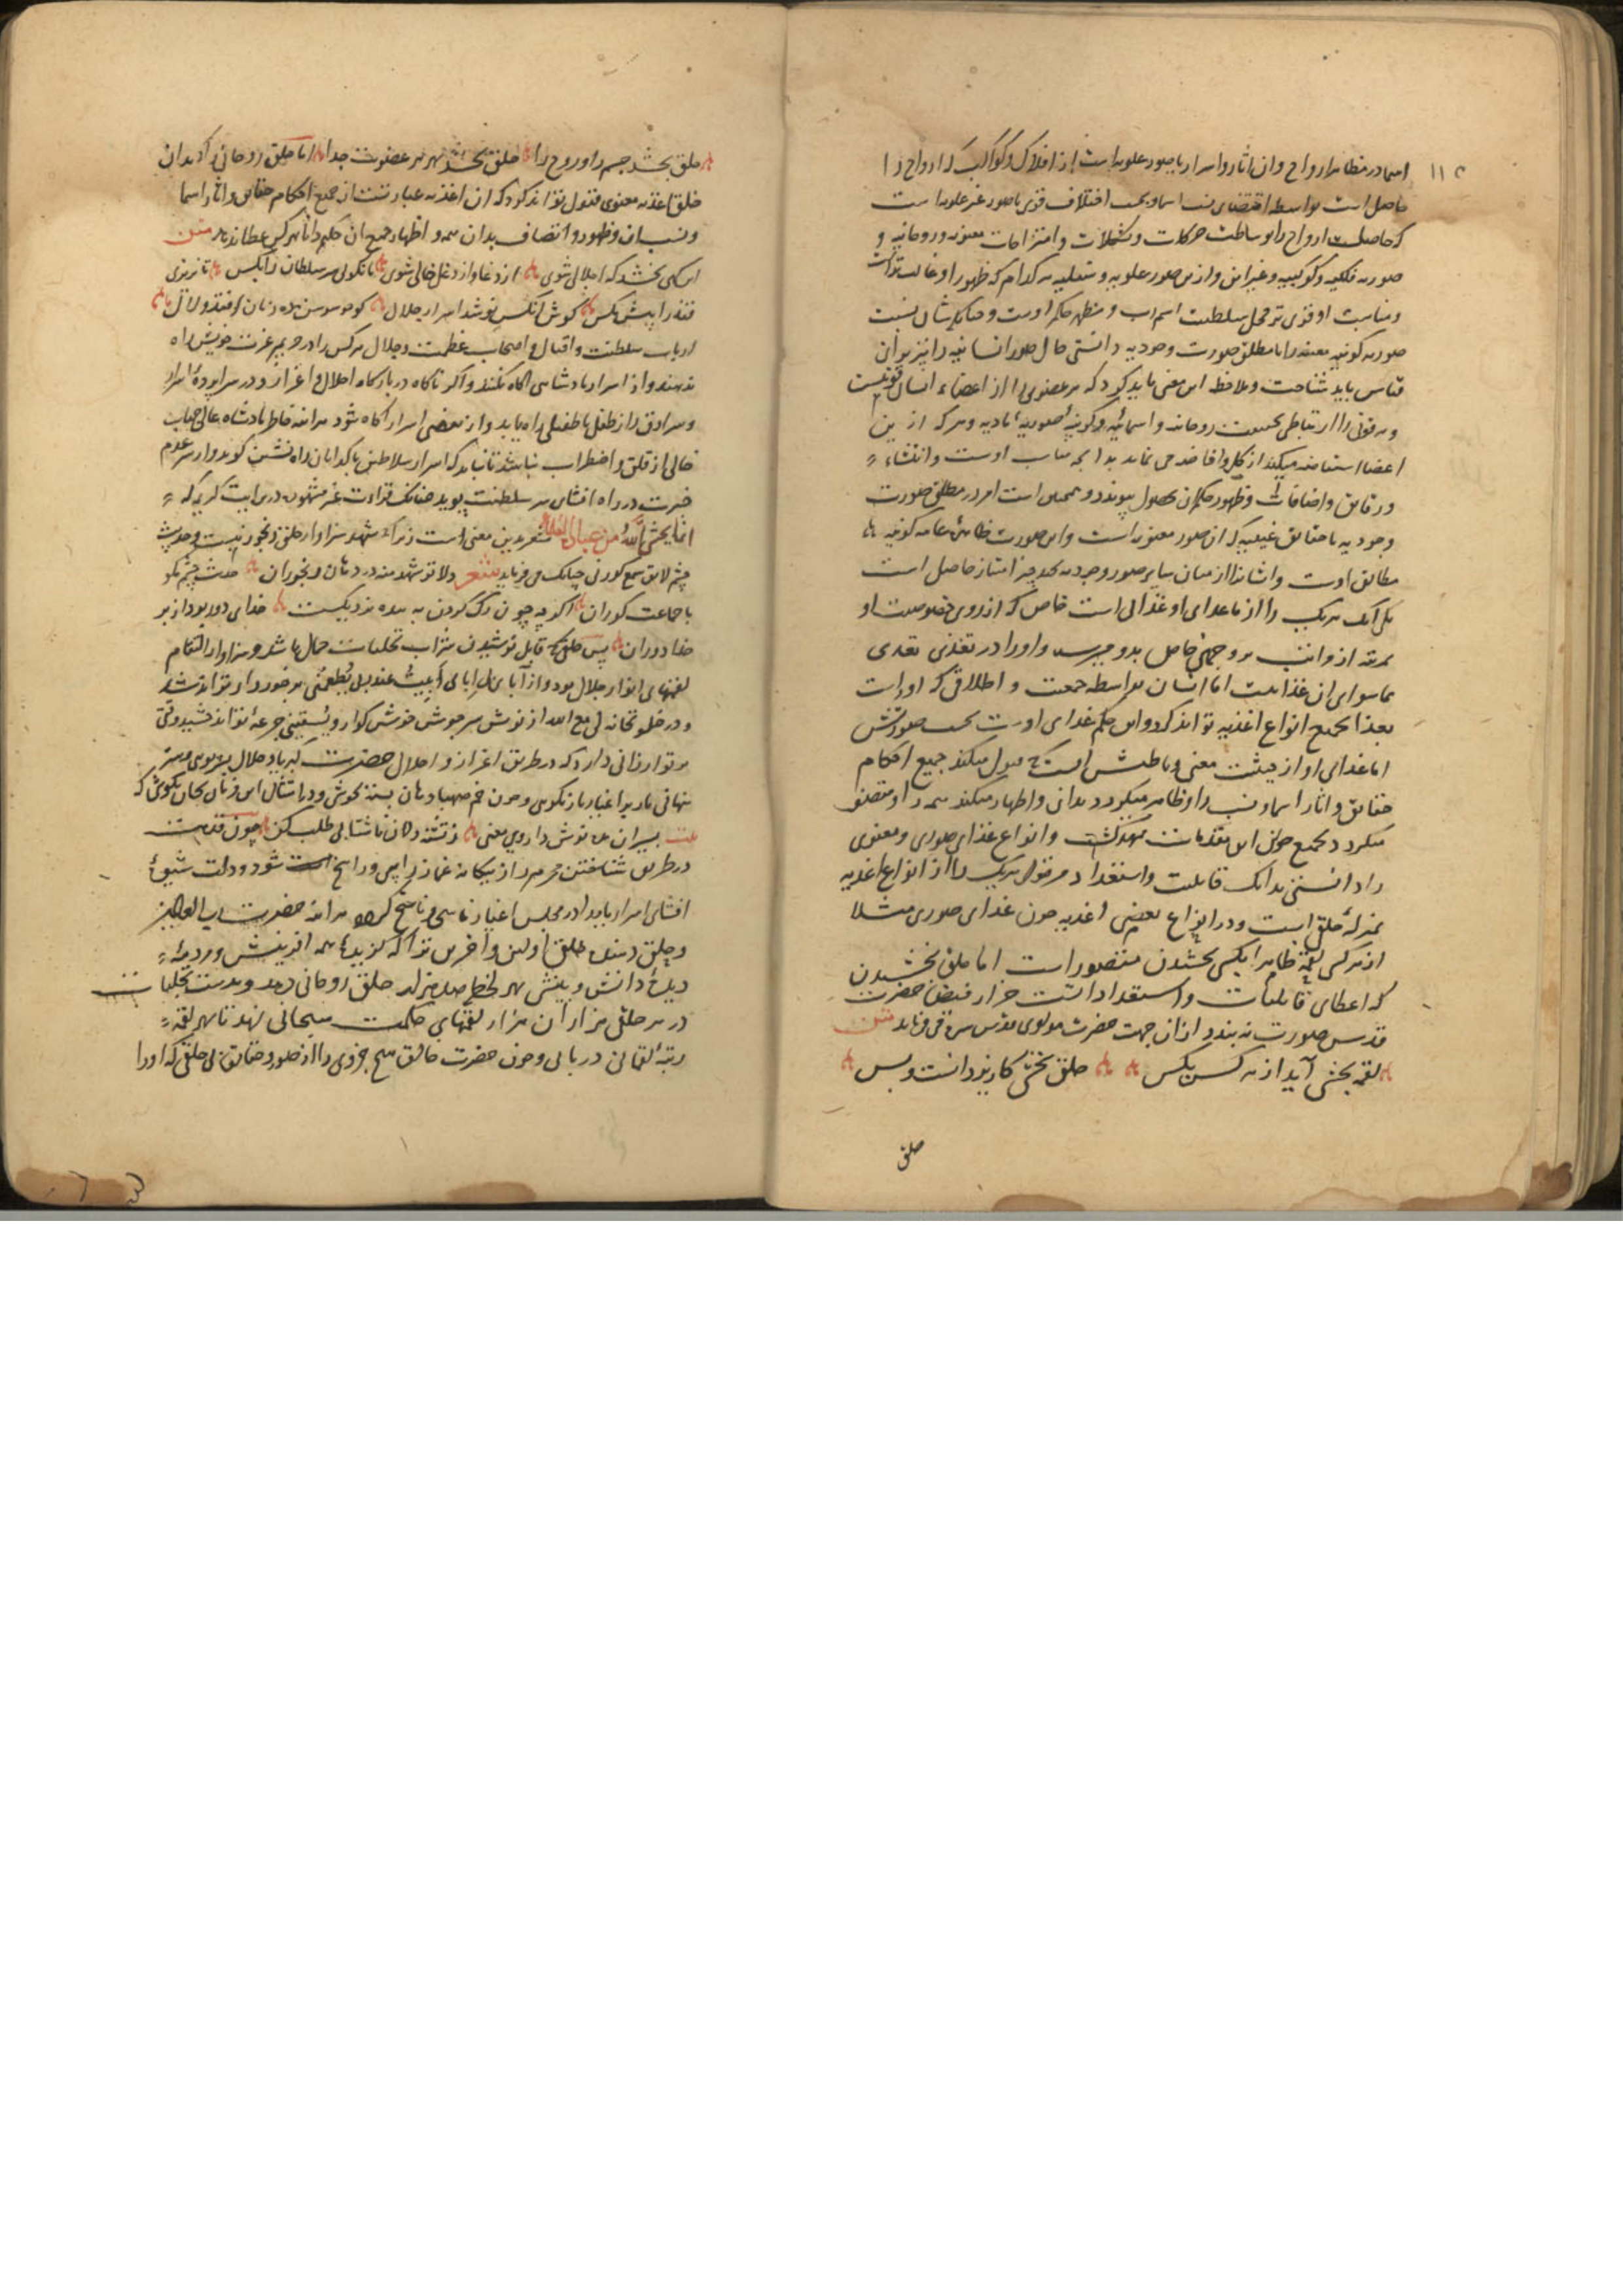 ۱۱۲
اسما در مظاهر ارواح و ان اثار و اسرار با صور علویه است از افلاک و کواکب که ارواح را
حاصل است بواسطه اقتضای نسب اسما و بحسب اختلاف قوی با صور غیر علویه است
که حاصل ارواح را بوساطت حرکات و تشکلات و امتزاجات معنویه و روحانیه و
صوریه فلکیه و کوکبیه و غیر این و ازین صور علویه و سفلیه هر کدام که ظهور او غالب تر است
و مناسبت او قوی تر محل سلطنت اسم رب و مظهر حکم اوست و چنانکه شان نسبت
صوریه کونیه معینه را با مطلق صورت وجودیه دانستی حال صور انسانیه را نیز بر ان
قیاس باید شناخت و ملاحظه این معنی باید کرد که هر عضوی را از اعضاء انسان قوتیست
و هر قوتی را ارتباطی بحقیقت روحانیه و اسمائیه و کونیه صوریه مادیه و هر که ازین
اعضا استفاضه میکند از کل و افاضه می نماید بدانچه مناسب اوست و انتشاء
و رقایق و اضافات و ظهور حکم ان بحصول پیوندد و همچنین است امر در مطلق صورت
وجودیه با حقایق غیبیه که ان صور معنویه است و این صورت ظاهره عامه کونیه
مطابق اوست و انسان را از میان سایر صور وجودیه بچند چیز امتیاز حاصل است
یکی آنکه هر یک را از ماعدای او غذائی است خاص که از روی خصوصیت او
مرتبه از مراتب بر وجهی خاص بدو میرسد و او را در تغذی تعدی
بماسوای ان غذا نیست اما انسان بواسطه جمعیت و اطلاقی که او راست
تغذا بجمیع انواع اغذیه تواند کرد و این حکم غذای اوست بحسب صورتش
اما غذای او از حیثیت معنی و باطنش انست که قبول میکند جمیع احکام
حقایق و اثار اسما و نسب را و ظاهر میگردد بدان و اظهار میکند همه را و متصف
میگردد بجمیع چون این مقدمات ممهد گشت و انواع غذای صوری و معنوی
را دانستی بدانکه قابلیت و استعداد هر قوای هر یک را از انواع اغذیه
بمنزلهٔ حلق است و در انواع بعضی اغذیه چون غذای صوری مثلا
از هر کسی لقمه ظاهر ایکسی بخشیدن متصور است اما حلق بخشیدن
که اعطای قابلیات و استعدادات است جز از فیض حضرت
قدس صورت نه بندد از ان جهت حضرت مولوی قدس سره می فرماید متن
لقمه بخشی آید از هر کس بکس حلق بخشی کار یزدانست و بس
حلق
حلق بخشد جسم را و روح را حلق بخشد بهر هر عضوت جدا اما حلق روحانی که بدان
حلق اغذیه معنوی قبول تواند کرد که ان اغذیه عبارتست از جمیع احکام حقایق و اثار اسما
و نسب ان و ظهور و اتصاف بدان همه و اظهار جمیع ان حکیم دانا بهر کس عطا نماید متن
این گهی بخشد که اجلالی شوی از دغا و از دغل خالی شوی تا نگوئی سر سلطان را بکس تا نریزی
قند را پیش مگس گوش آنکس نوشد اسرار جلال کو چو سوسن ده زبان افتد و لال
ارباب سلطنت و اقبال و اصحاب عظمت و جلال هر کس را در حریم عزت خویش راه
ندهند و از اسرار پادشاهی اگاه نکنند و اگر ناگاه در بارگاه اجلال و اعزاز و در سراپردهٔ اسرار
و سرادق راز طفلی با طفیلی راه یابد و از بعضی اسرار اگاه شود هر اینه خاطر پادشاه عالیجناب
خالی از قلق و اضطراب نباشد تا نباید که اسرار سلاطین با گدایان راه نشین گوید و از سر عدم
خبرت در راه افشای سر سلطنت پوید چنانکه قراءت غیر مشهوره در ایت کریمه که
انما یخشی اللهُ من عباده العلماءَ مشعر بدین معنی است زیرا که شهد سزاوار حلق رنجور نیست و حدیث
چشم لایق سمع کور نی چنانکه می فرماید شعر دلا تو شهد منه در دهان رنجوران حدیث چشم مگو
با جماعت کوران اگر چه چون رگ گردن به بنده نزدیکست خدای دور بود از بر
خدا دوران پس حلق که قابل نوشیدن شراب تجلیات جمال باشد و سزاوار التقام
لقمهای انوار جلال بود و از آبای ابیتُ عند ربی یُطعمنی برخوردار تواند شد
و در خلوتخانه لی مع الله از نوش سرجوش خوش گوار و یَسقینی جرعهٔ تواند چشید وقتی
بر تو ارزانی دارد که در طریق اعزاز و اجلال حضرت کبریا و جلال پویی و سر
نهانی یار با اغیار باز نگوئی و چون خم صهبا دهان بسته بجوشی و در امتثال این فرمان بجان بکوشی که
بیت بسیران ده نوش داروی معنی ز تشنه دلان ناشتابی طلب کن چون قدمت
در طریق شناختن محرم راز از بیگانه غماز راسخ شود و دلت شیوهٔ
افشای اسرار یار را در مجلس اغیار ناسخ گردد هر اینه حضرت رب العالمین
و حلق دهنده خلق اولین و اخرین ترا که گزیده همه افرینش و مردمهٔ
دیدهٔ دانش و بینش بهر لحظه صد هزار حلق روحانی دهد و بدست تجلیات
در هر حلقی هزاران هزار لقمهای حکمت سبحانی نهد تا بهر لقمه
رتبهٔ لقمانی دریابی و چون حضرت خالق هیچ جزوی را از صور و حقایق بی حلقی که او را